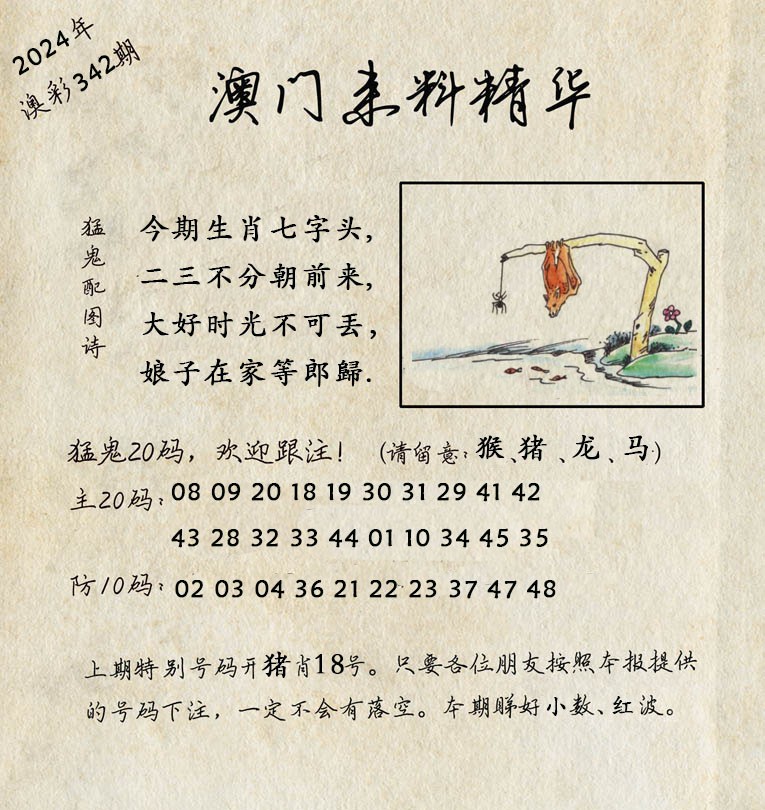 2024年
澳彩342期
澳门来料精华
猛鬼配图诗
今期生肖七字头,
二三不分朝前来,
大好时光不可丢,
娘子在家等郎歸.
猛鬼20码，欢迎跟注！（请留意：猴、猪、龙、马）
主20码：08 09 20 18 19 30 31 29 41 42
43 28 32 33 44 01 10 34 45 35
防10码：02 03 04 36 21 22 23 37 47 48
上期特别号码开猪肖18号。只要各位朋友按照本报提供
的号码下注，一定不会有落空。本期睇好小数、红波。